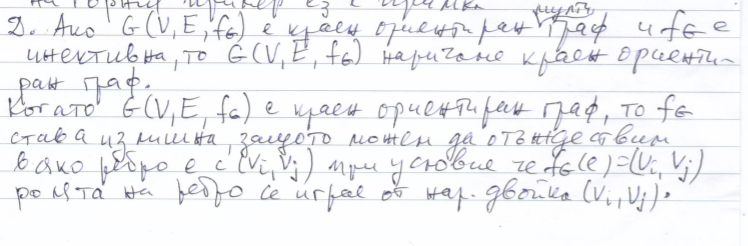 на горния пример е з с примка
мулти
D. Ако G(V, E, f_G) е краен ориентиран граф и f_G е
инективна, то G(V, E, f_G) наричаме краен ориенти-
ран граф.
Когато G(V, E, f_G) е краен ориентиран граф, то f_G
става излишна, защото можем да отъждествим
всяко ребро e с (v_i, v_j) при условие че f_G(e)=(v_i, v_j)
ролята на ребро се играе от нар. двойка (v_i, v_j).